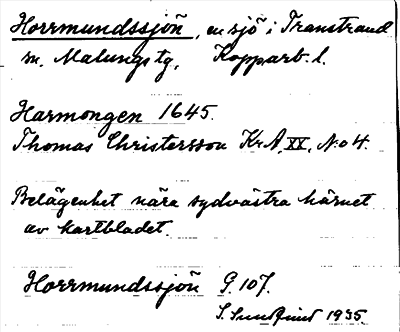 Horrmundssjön, en sjö i Transtrand
sn. Malungs tg, Kopparb. l.
Harmongen 1645.
Thomas Christersson KrA, XX, No 4.
Belägenhet nära sydvästra hörnet
av kartbladet.
Horrmundssjön G. 107.
S. Sundquist 1935